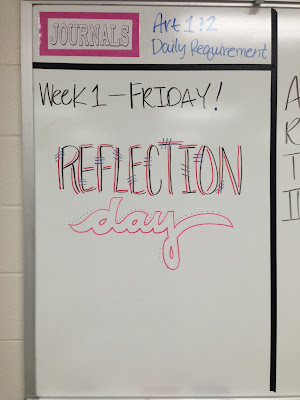 JOURNALS
Art 1 & 2
Daily Requirement
WEEK 1 – FRIDAY!
REFLECTION
day
A
R
T
I